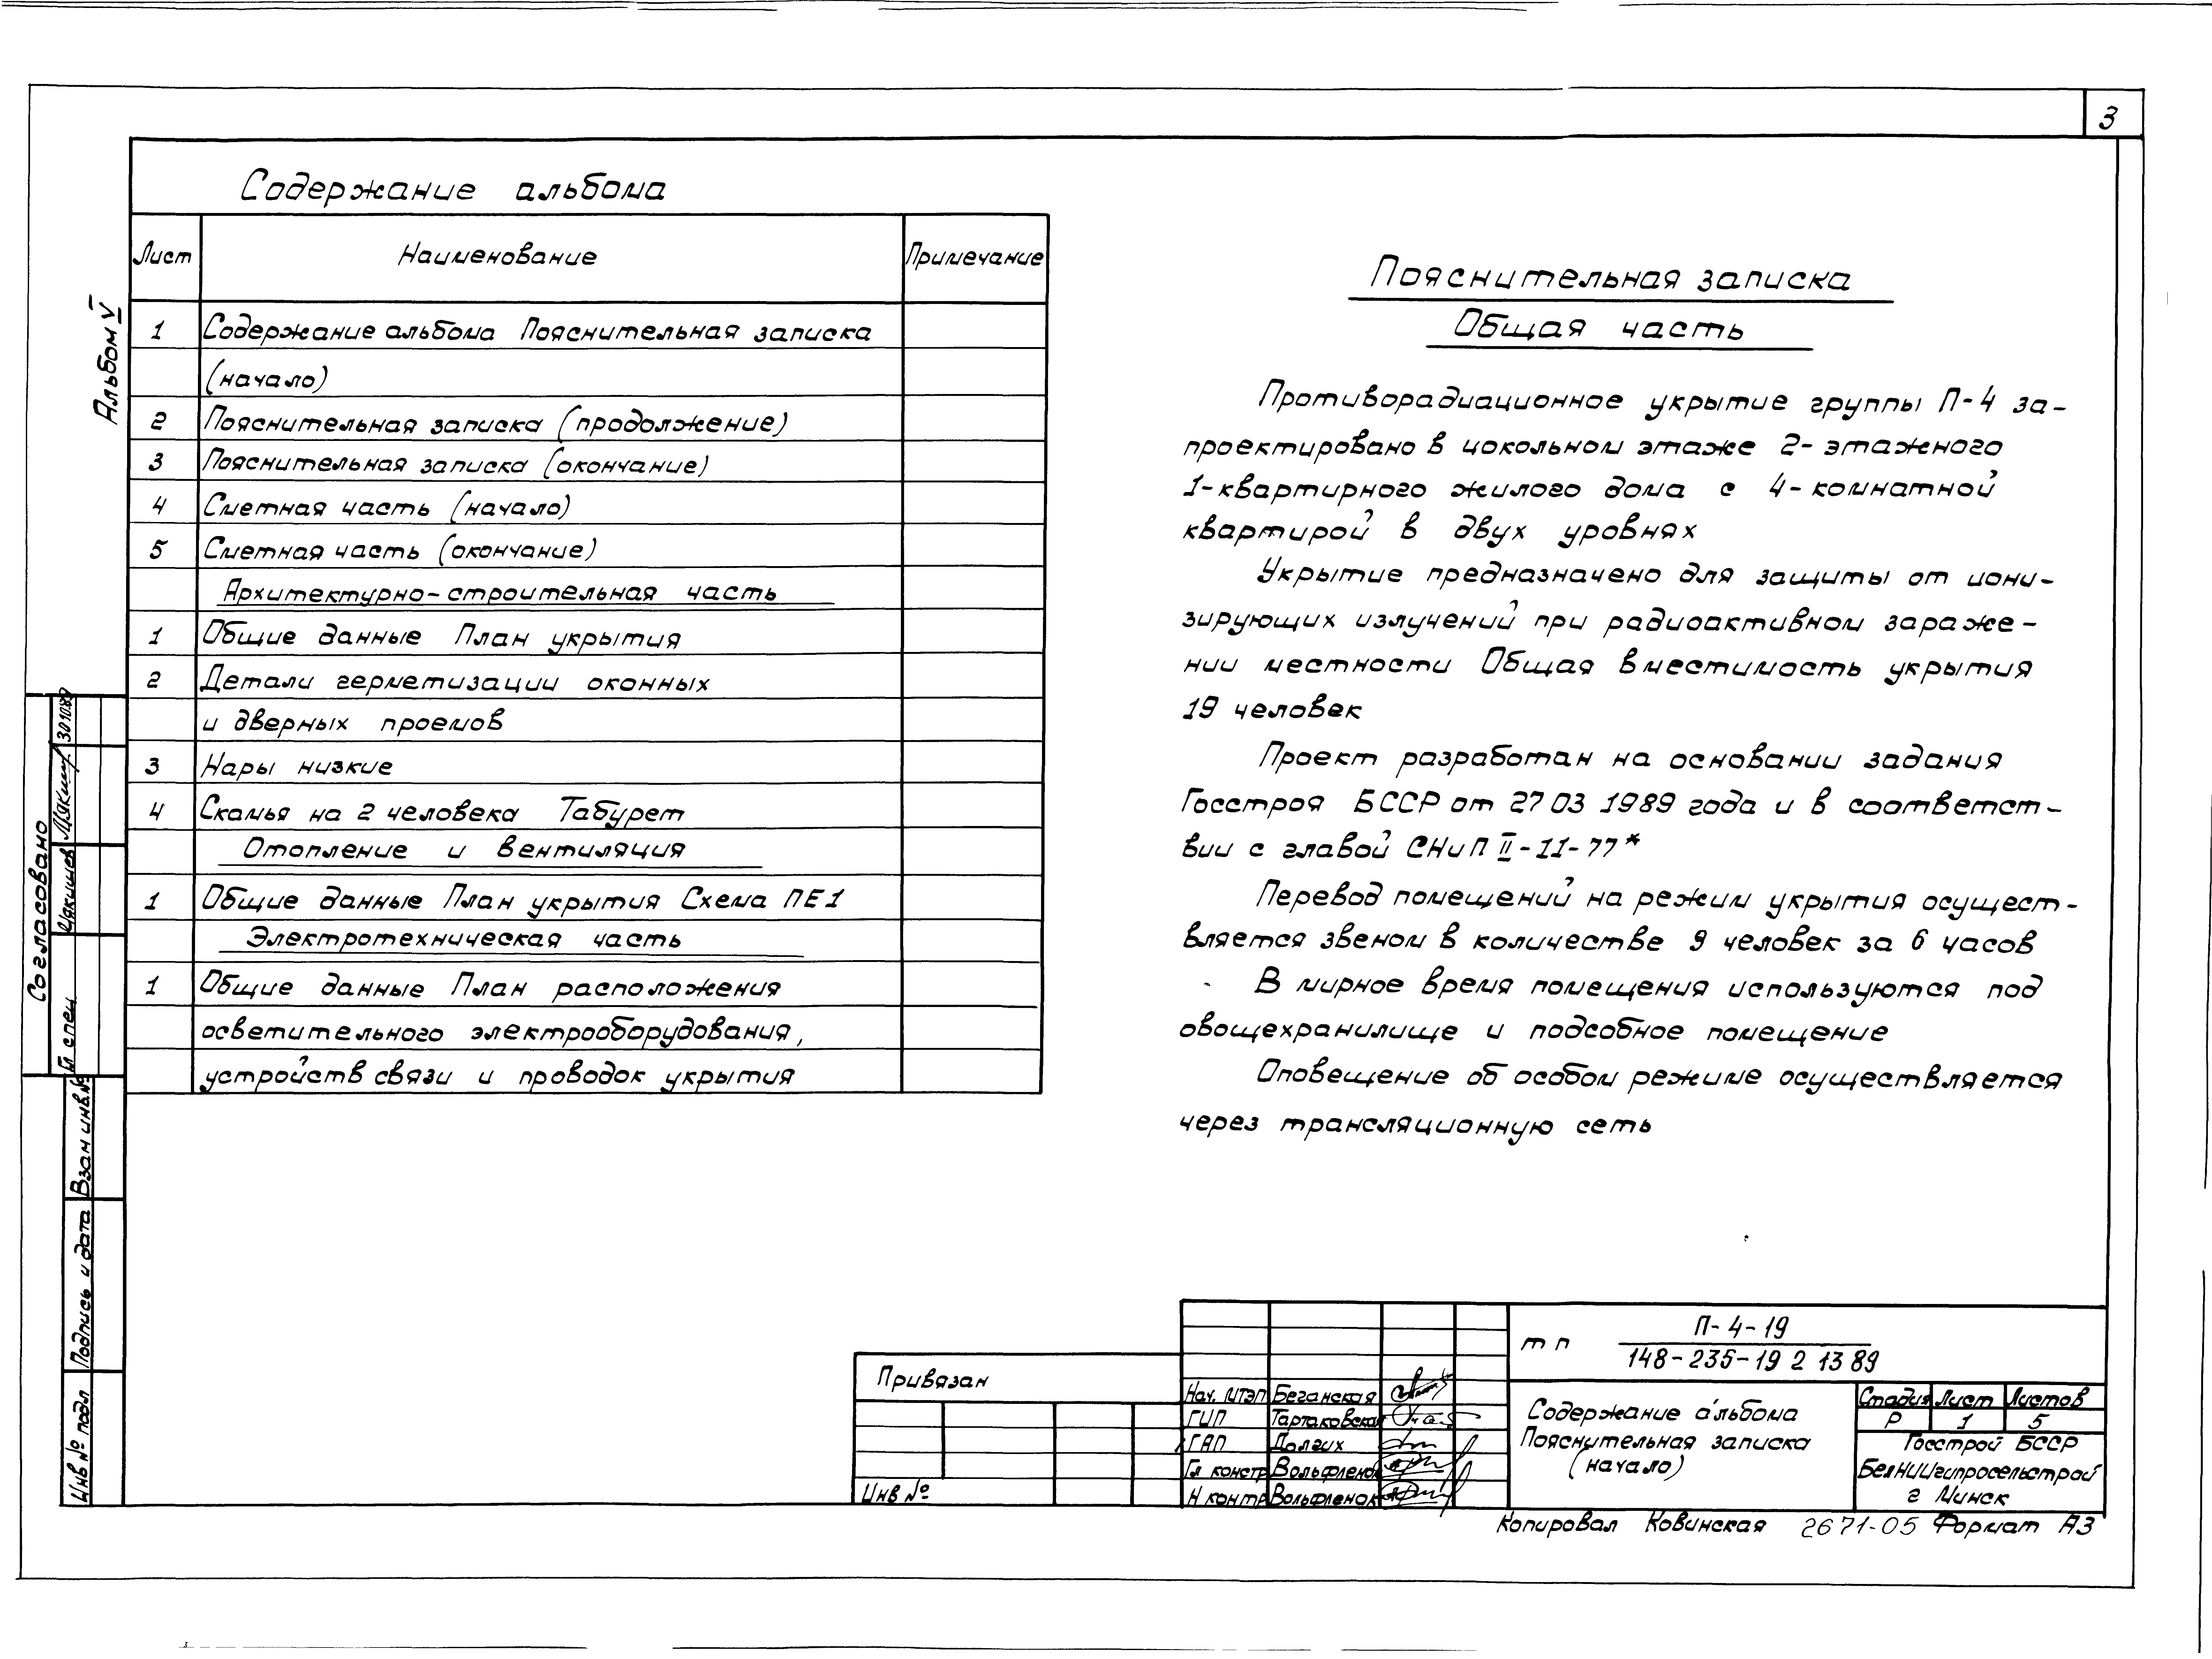 3
Содержание альбома
Лист Наименование Примечание
1 Содержание альбома Пояснительная записка
(начало)
2 Пояснительная записка (продолжение)
3 Пояснительная записка (окончание)
4 Сметная часть (начало)
5 Сметная часть (окончание)
Архитектурно-строительная часть
1 Общие данные План укрытия
2 Детали герметизации оконных
и дверных проемов
3 Нары низкие
4 Скамья на 2 человека Табурет
Отопление и вентиляция
1 Общие данные План укрытия Схема ПЕ1
Электротехническая часть
1 Общие данные План расположения
осветительного электрооборудования,
устройств связи и проводок укрытия
Пояснительная записка
Общая часть
Противорадиационное укрытие группы П-4 за-
проектировано в цокольном этаже 2-этажного
1-квартирного жилого дома с 4-комнатной
квартирой в двух уровнях
Укрытие предназначено для защиты от иони-
зирующих излучений при радиоактивном зараже-
нии местности Общая вместимость укрытия
19 человек
Проект разработан на основании задания
Госстроя БССР от 27 03 1989 года и в соответст-
вии с главой СНиП II-11-77*
Перевод помещений на режим укрытия осущест-
вляется звеном в количестве 9 человек за 6 часов
В мирное время помещения используются под
овощехранилище и подсобное помещение
Оповещение об особом режиме осуществляется
через трансляционную сеть
Альбом V
Согласовано
Гл спец
30 10 89
Взам инв №
Подпись и дата
Инв № подл
Привязан
Инв №
Нач. МТЭП Беганская
ГИП Тартаковская
ГАП Долгих
Гл констр Вольфленок
Н контр Вольфленок
т п П-4-19
148-235-19 2 13 89
Содержание альбома
Пояснительная записка
(начало)
Стадия Лист Листов
Р 1 5
Госстрой БССР
БелНИИгипросельстрой
г Минск
Копировал Ковинская 2671-05 Формат А3